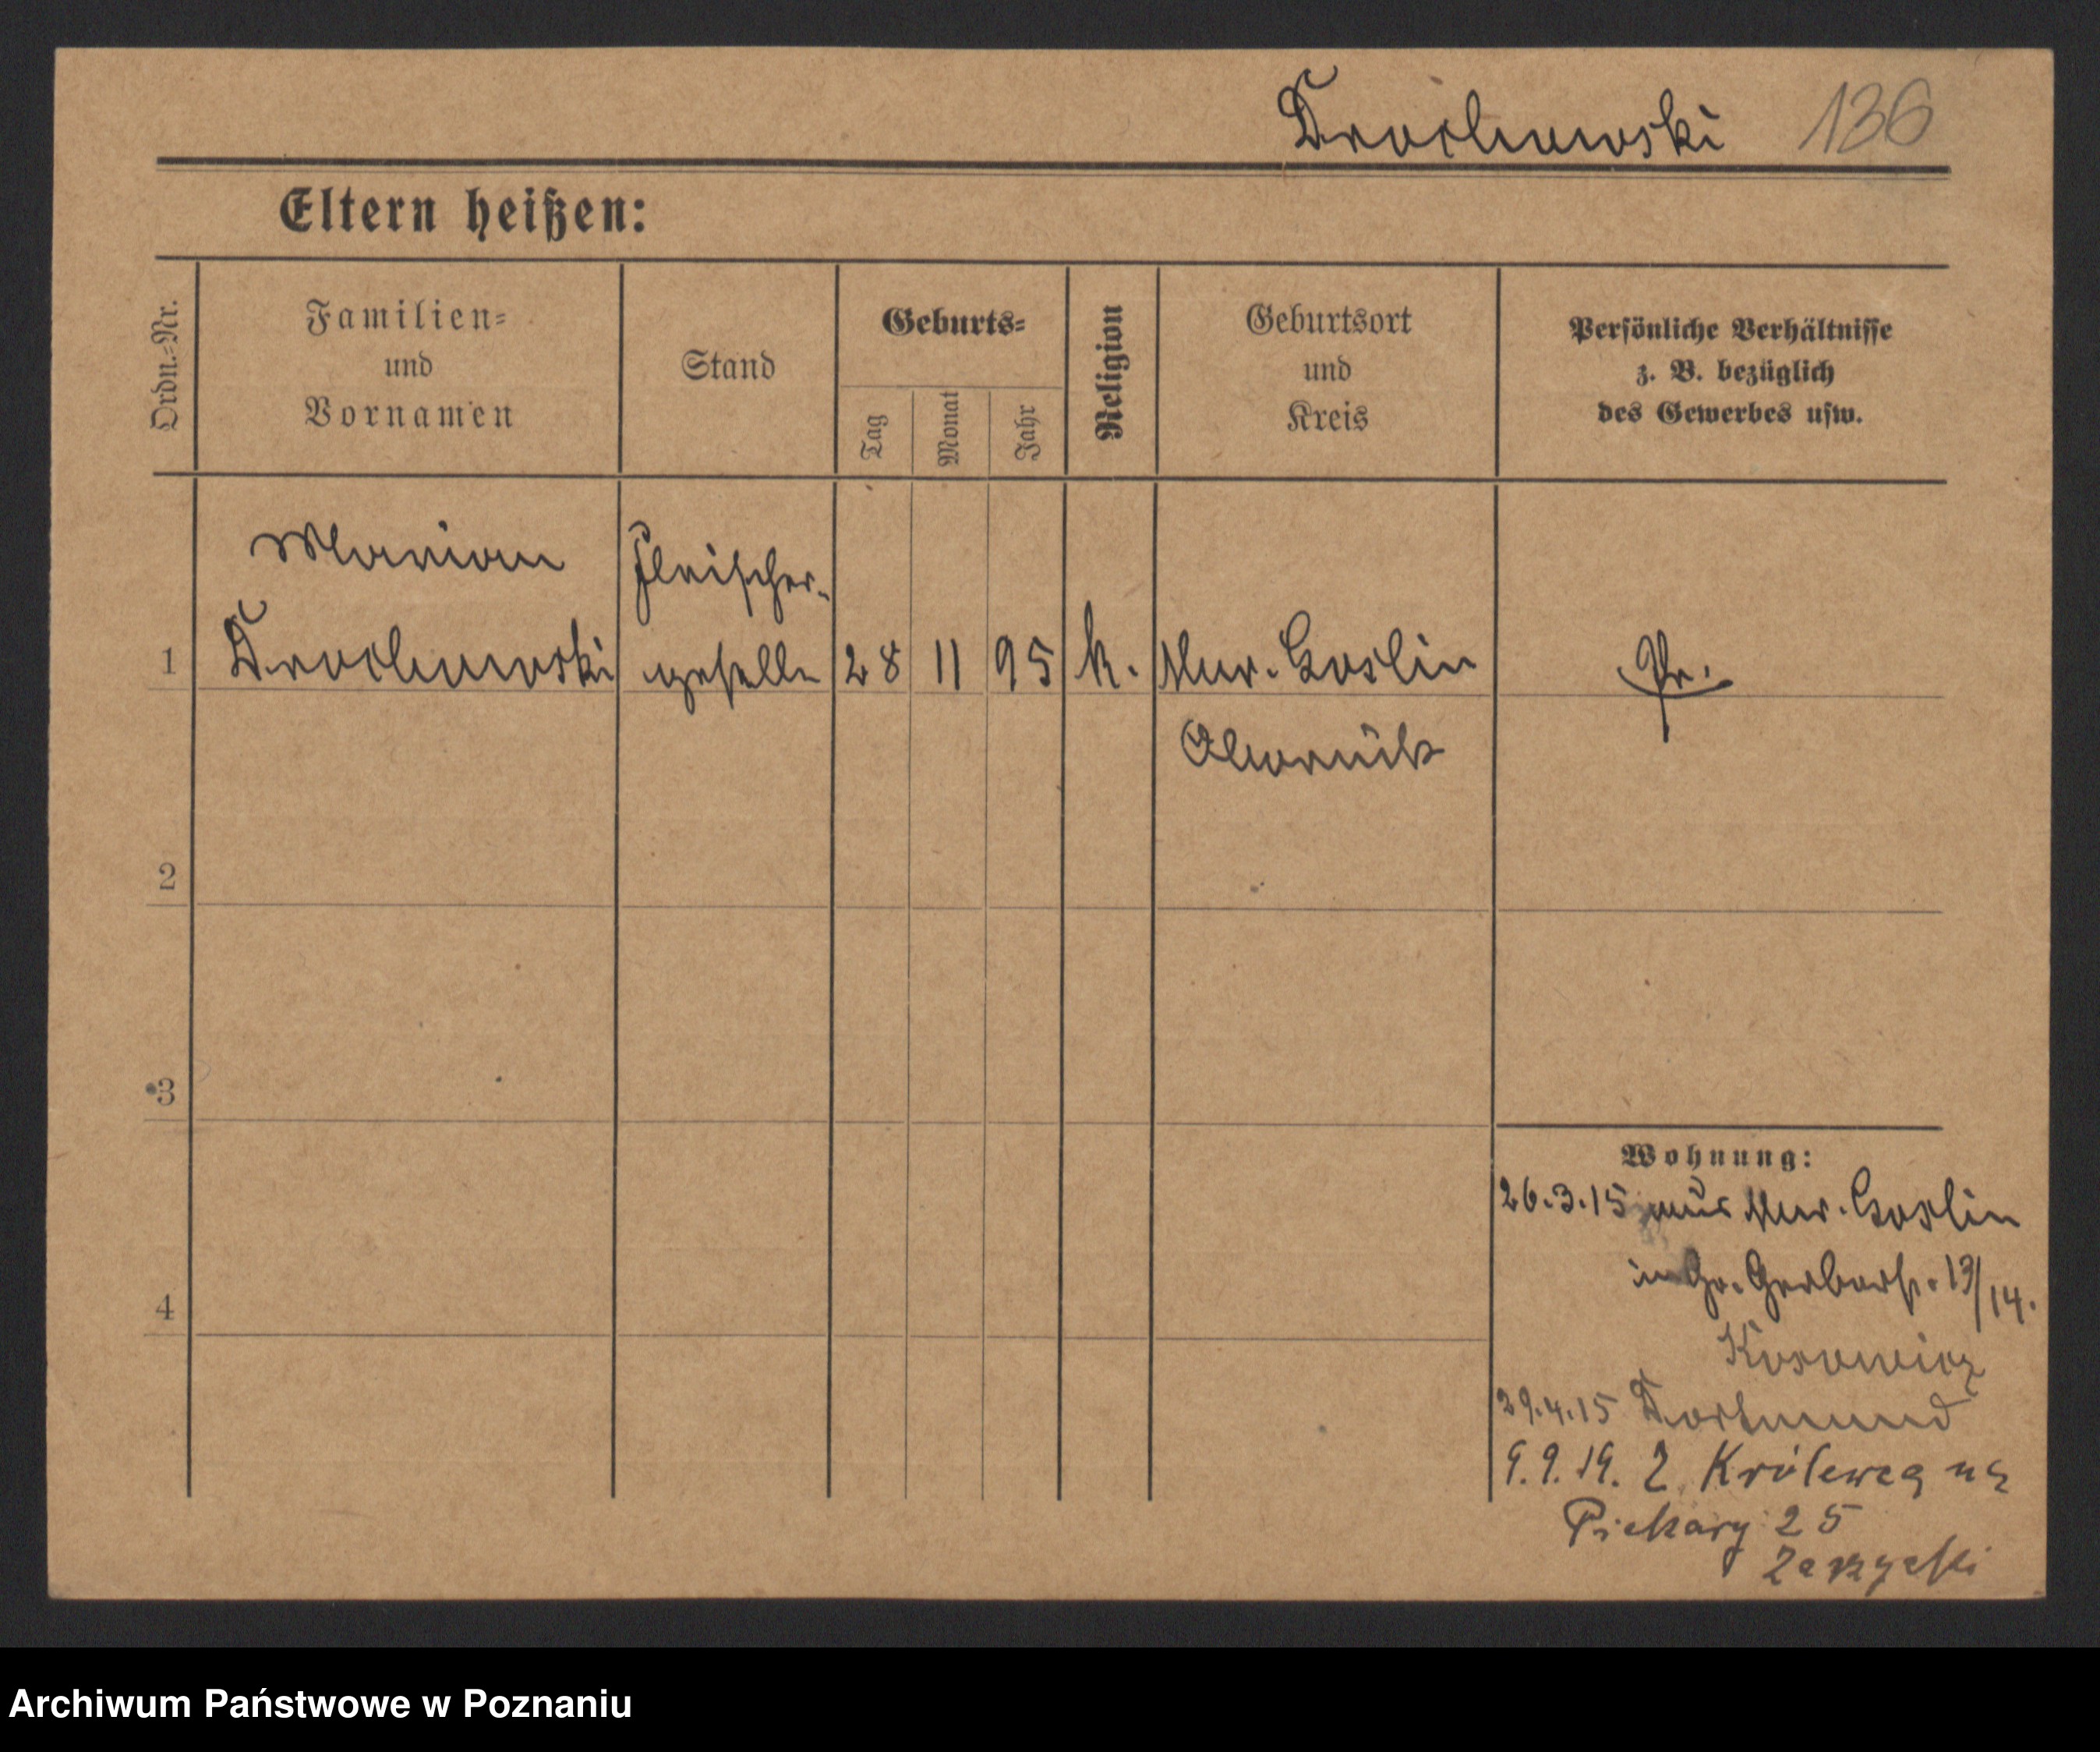 Drochowski 136
Eltern heißen:
Ordn.=Nr.
Familien=
und
Vornamen
Stand
Geburts=
Tag
Monat
Jahr
Religion
Geburtsort
und
Kreis
Persönliche Verhältnisse
z. B. bezüglich
des Gewerbes usw.
Marian
Fleischer-
1 Drochowski geselle 28 11 95 k. Mur. Goslin Pr.
Obornik
2
3
4
Wohnung:
26.3.15 aus Mur. Goslin
in Gr. Gerberstr. 13/14.
29.4.15 Dortmund
9.9.19. Z Królewca na
Piekary 25
Archiwum Państwowe w Poznaniu